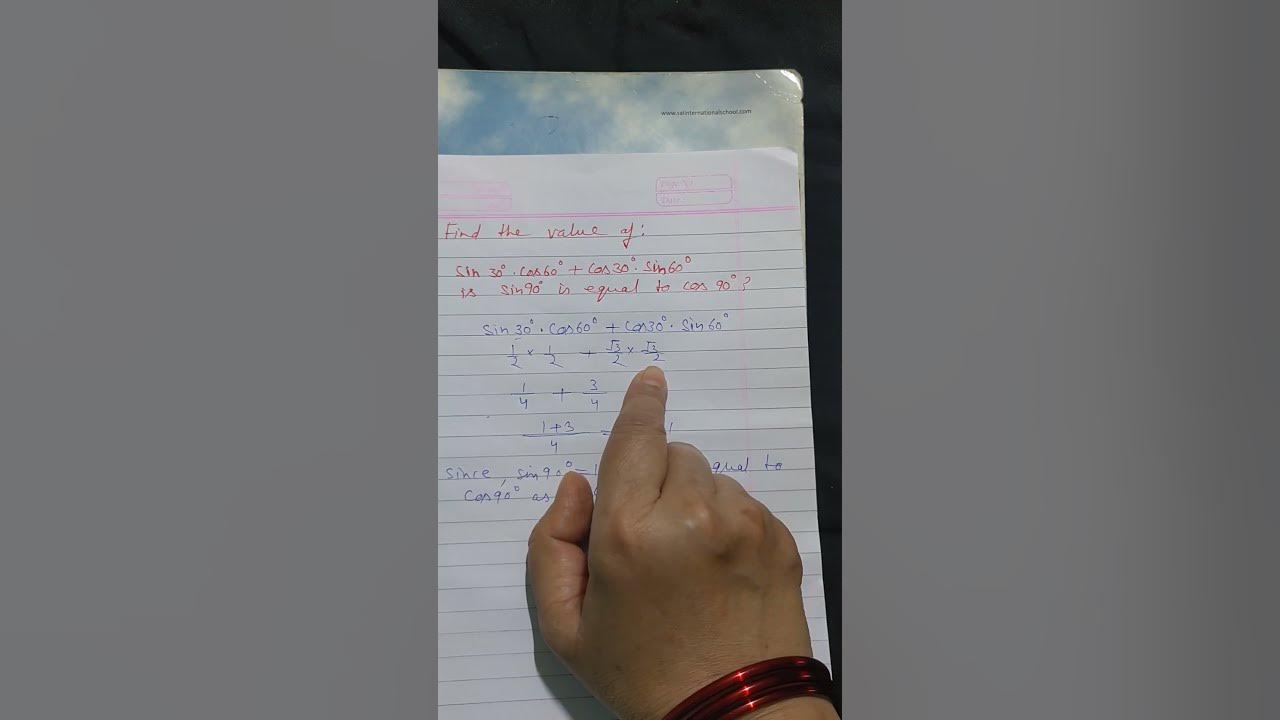 www.saiinternationalschool.com
Find the value of:
sin 30°. cos60° + cos30°. sin60°
is sin90° is equal to cos 90°?
sin 30° · cos60° + cos30° · sin 60°
1/2 × 1/2 + √3/2 × √3/2
1/4 + 3/4
1+3/4 = 1
since, sin90° = 1 equal to
cos90° as